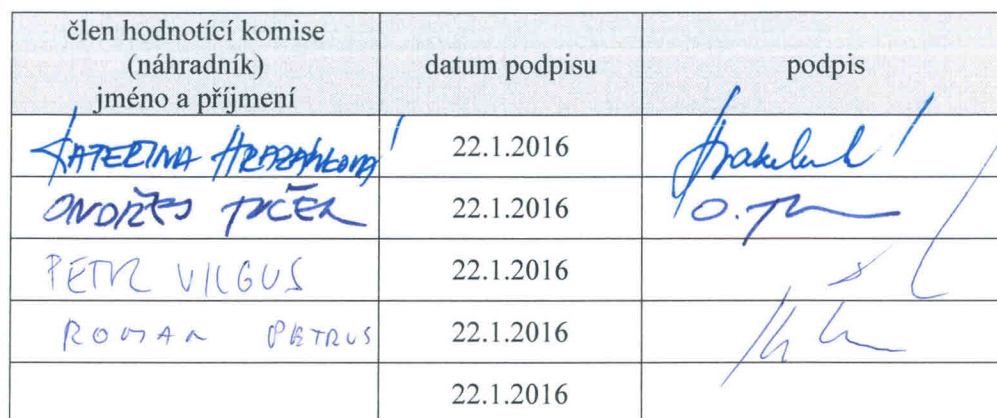 člen hodnotící komise
(náhradník)
jméno a příjmení
datum podpisu
podpis
KATEŘINA
22.1.2016
ONDŘEJ
22.1.2016
O.
PETR VILGUS
22.1.2016
ROMAN PETRUS
22.1.2016
22.1.2016